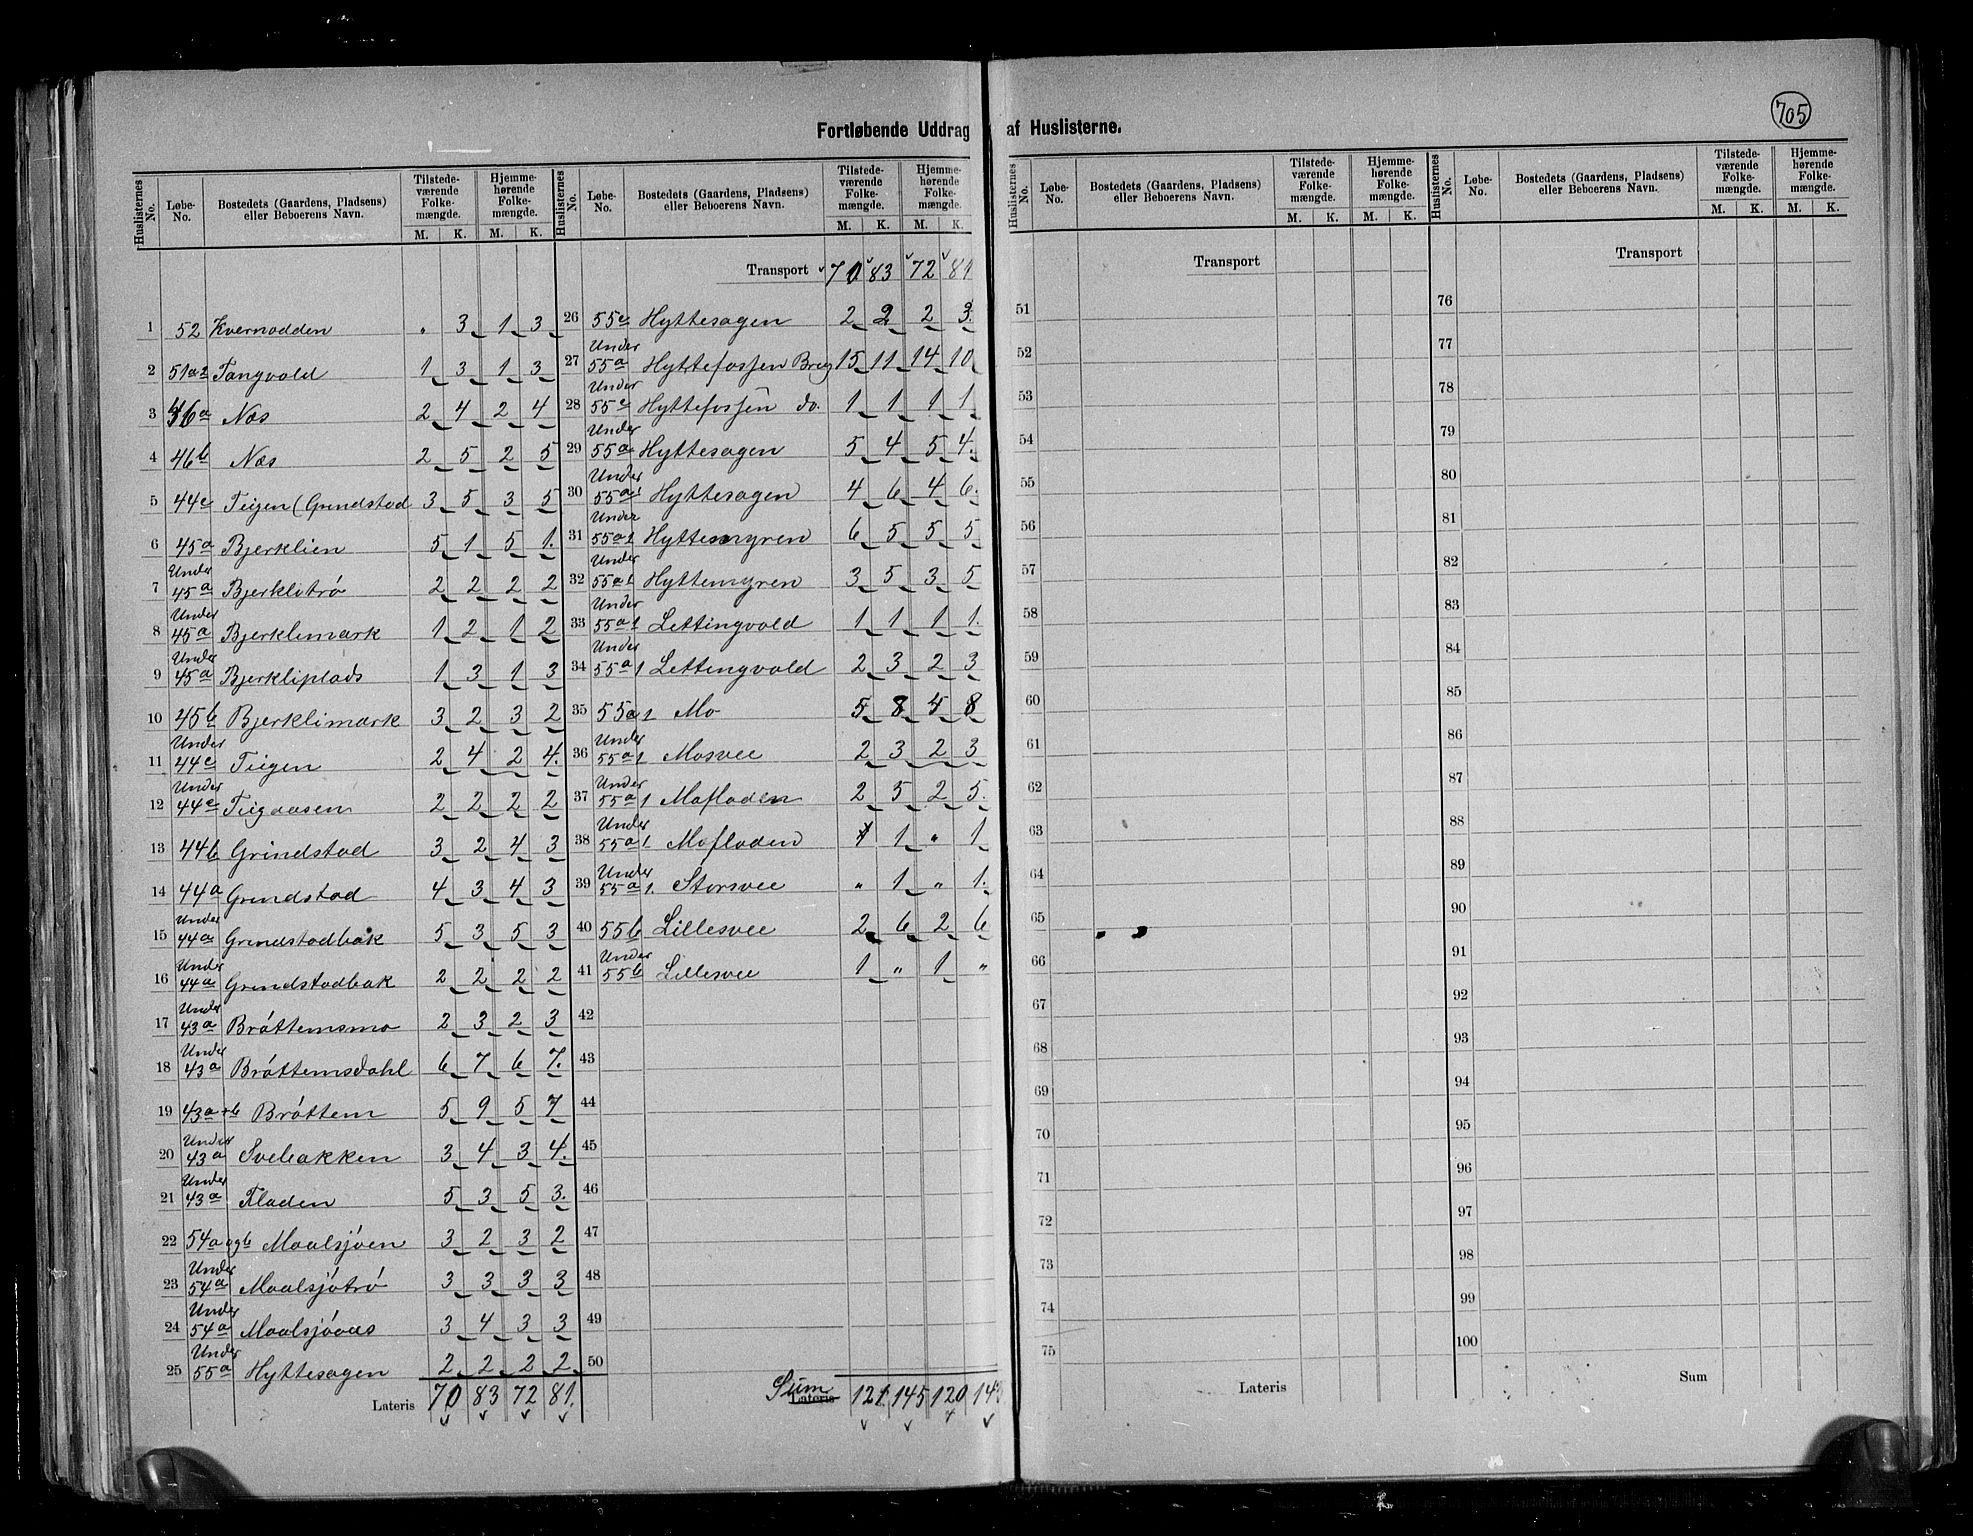 705
Fortløbende Uddrag af Huslisterne.
Huslisternes No. Løbe-No. Bostedets (Gaardens, Pladsens) eller Beboerens Navn. Tilstedeværende Folkemængde. M. K. Hjemmehørende Folkemængde. M. K.
1 52 Kvernodden " 3 1 3
2 51a2 Tangvold 1 3 1 3
3 46a Næs 2 4 2 4
4 46b Næs 2 5 2 5
5 44c Teigen (Grindstad 3 5 3 5
6 45a Bjerklien 5 1 5 1.
7 Under 45a Bjerklitrø 2 2 2 2
8 Under 45a Bjerklimark 1 2 1 2
9 Under 45a Bjerkliplads 1 3 1 3
10 45b Bjerklimark 3 2 3 2
11 Under 44c Teigen 2 4 2 4.
12 Under 44c Teigaasen 2 2 2 2
13 44b Grindstad 3 2 4 3
14 44a Grindstad 4 3 4 3
15 Under 44a Grindstadbak 5 3 5 3
16 Under 44a Grindstadbak 2 2 2 2
17 Under 43a Brøttemsmo 2 3 2 3
18 Under 43a Brøttemsdahl 6 7 6 7.
19 43a+b Brøttem 5 9 5 7
20 Under 43a Svebakken 3 4 3 4.
21 Under 43a Fladen 5 3 5 3.
22 54a og b Maalsjøen 3 2 3 2
23 Under 54a Maalsjøtrø 3 3 3 3
24 Under 54a Maalsjøaas 3 4 3 3
25 Under 55a Hyttesagen 2 2 2 2
Lateris 70 83 72 81.
Huslisternes No. Løbe-No. Bostedets (Gaardens, Pladsens) eller Beboerens Navn. Tilstedeværende Folkemængde. M. K. Hjemmehørende Folkemængde. M. K.
Transport 70 83 72 81
26 55c Hyttesagen 2 2 2 3.
27 Under 55a Hyttefossen Brug 15 11 14 10
28 Under 55c Hyttefossen do. 1 1 1 1
29 Under 55a Hyttesagen 5 4 5 4.
30 Under 55a1 Hyttesagen 4 6 4 6.
31 Under 55a1 Hyttemyren 6 5 5 5
32 Under 55a1 Hyttemyren 3 5 3 5
33 Under 55a1 Lettingvold 1 1 1 1.
34 Under 55a1 Lettingvold 2 3 2 3
35 55a1 Mo 5 8 4 8
36 Under 55a1 Mosvee 2 3 2 3
37 Under 55a1 Mofladen 2 5 2 5.
38 Under 55a1 Mofladen 1 "  1
39 Under 55a1. Storsvee " 1 " 1.
40 55b Lillesvee 2 6 2 6
41 Under 55b Lillesvee 1 " 1 "
42
43
44
45
46
47
48
49
50
Sum Lateris 121 145 120 143
Huslisternes No. Løbe-No. Bostedets (Gaardens, Pladsens) eller Beboerens Navn. Tilstedeværende Folkemængde. M. K. Hjemmehørende Folkemængde. M. K.
Transport
51
52
53
54
55
56
57
58
59
60
61
62
63
64
65
66
67
68
69
70
71
72
73
74
75
Lateris
Huslisternes No. Løbe-No. Bostedets (Gaardens, Pladsens) eller Beboerens Navn. Tilstedeværende Folkemængde. M. K. Hjemmehørende Folkemængde. M. K.
Transport
76
77
78
79
80
81
82
83
84
85
86
87
88
89
90
91
92
93
94
95
96
97
98
99
100
Sum